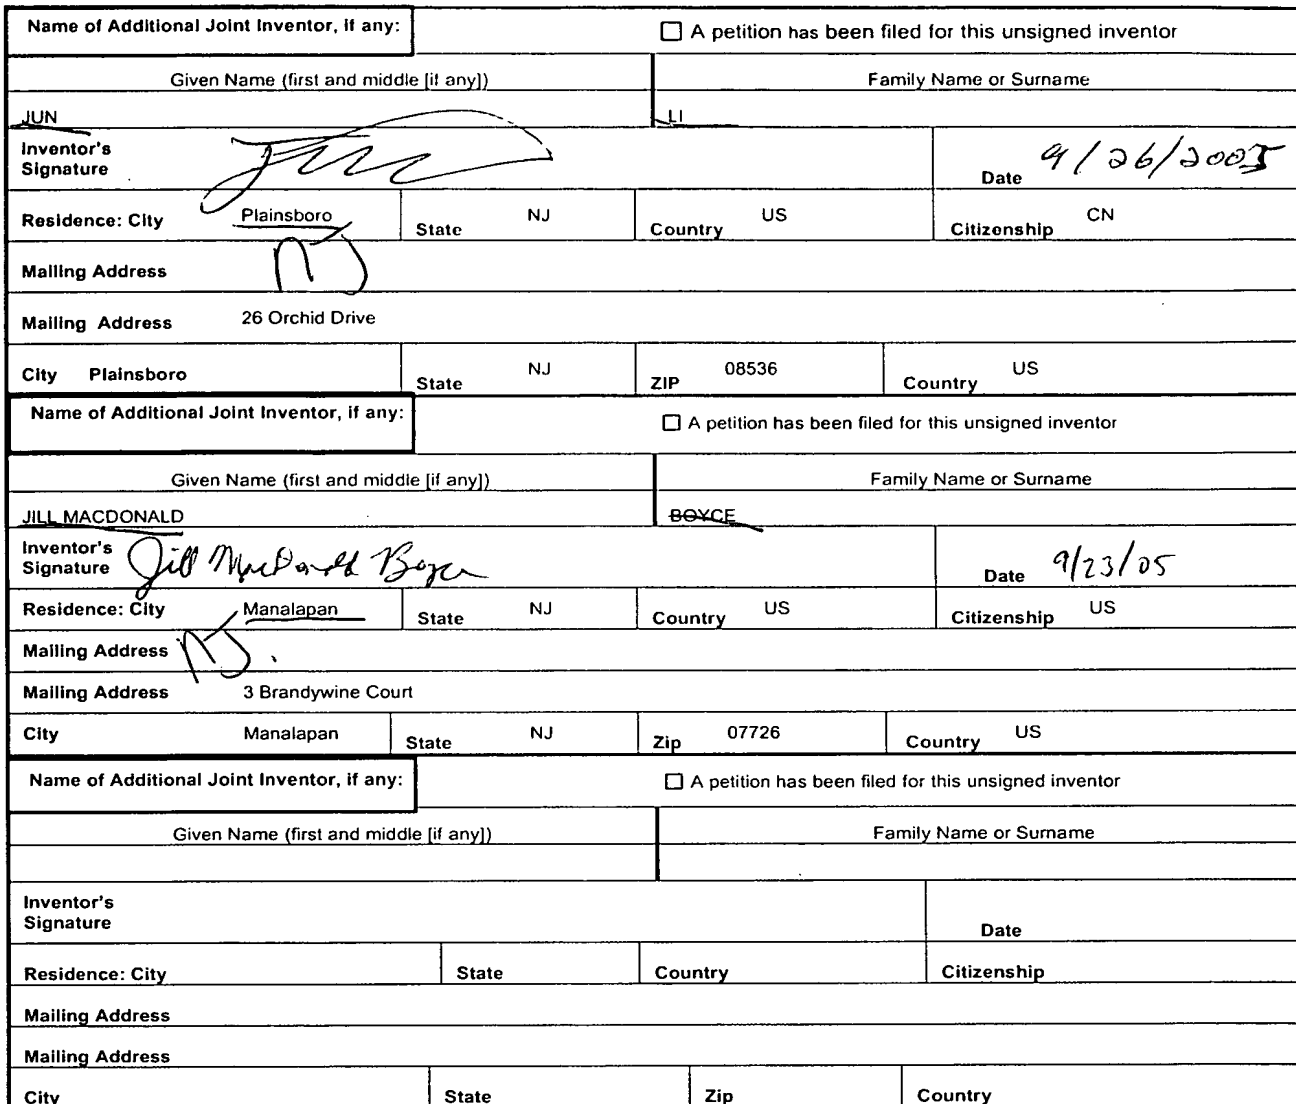 Name of Additional Joint Inventor, if any: ☐ A petition has been filed for this unsigned inventor
Given Name (first and middle [if any]) Family Name or Surname
JUN LI
Inventor's
Signature Date 9/26/2005
Residence: City Plainsboro State NJ Country US Citizenship CN
NJ
Mailing Address
Mailing Address 26 Orchid Drive
City Plainsboro State NJ ZIP 08536 Country US
Name of Additional Joint Inventor, if any: ☐ A petition has been filed for this unsigned inventor
Given Name (first and middle [if any]) Family Name or Surname
JILL MACDONALD BOYCE
Inventor's
Signature Jill MacDonald Boyce Date 9/23/05
Residence: City Manalapan State NJ Country US Citizenship US
Mailing Address NJ.
Mailing Address 3 Brandywine Court
City Manalapan State NJ Zip 07726 Country US
Name of Additional Joint Inventor, if any: ☐ A petition has been filed for this unsigned inventor
Given Name (first and middle [if any]) Family Name or Surname
Inventor's
Signature Date
Residence: City State Country Citizenship
Mailing Address
Mailing Address
City State Zip Country